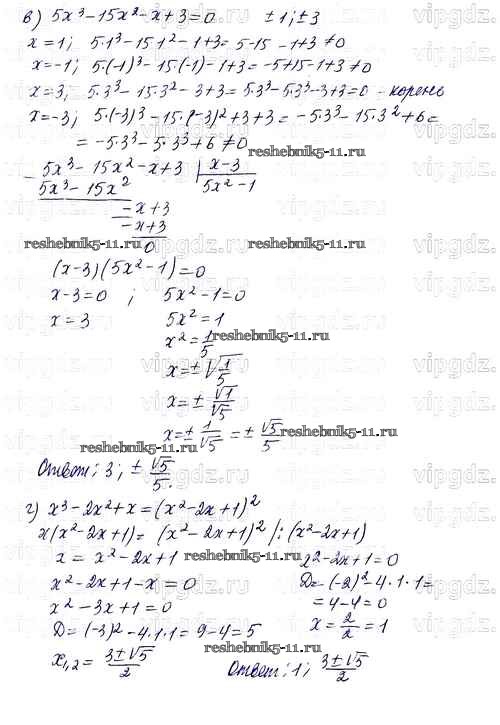 в) 5x³-15x²-x+3=0   ±1;±3
x=1; 5·1³-15·1²-1+3=5-15-1+3≠0
x=-1; 5(-1)³-15(-1)-1+3=-5+15-1+3≠0
x=3; 5·3³-15·3²-3+3=5·3³-5·3³-3+3=0 - корень
x=-3; 5·(-3)³-15·(-3)²+3+3=-5·3³-15·3²+6=
=-5·3³-5·3³+6≠0
5x³-15x²-x+3 | x-3
5x³-15x²   5x²-1
-x+3
-x+3
0
(x-3)(5x²-1)=0
x-3=0 ; 5x²-1=0
x=3   5x²=1
x²=1/5
x=±√1/5
x=±√1/√5
x=±1/√5=±√5/5
Ответ: 3; ±√5/5.
г) x³-2x²+x=(x²-2x+1)²
x(x²-2x+1)=(x²-2x+1)² /:(x²-2x+1)
x=x²-2x+1   x²-2x+1=0
x²-2x+1-x=0   D=(-2)²-4·1·1=
x²-3x+1=0   =4-4=0
D=(-3)²-4·1·1=9-4=5   x=2/2=1
x₁,₂=3±√5/2   Ответ: 1; 3±√5/2
reshebnik5-11.ru
vipgdz.ru